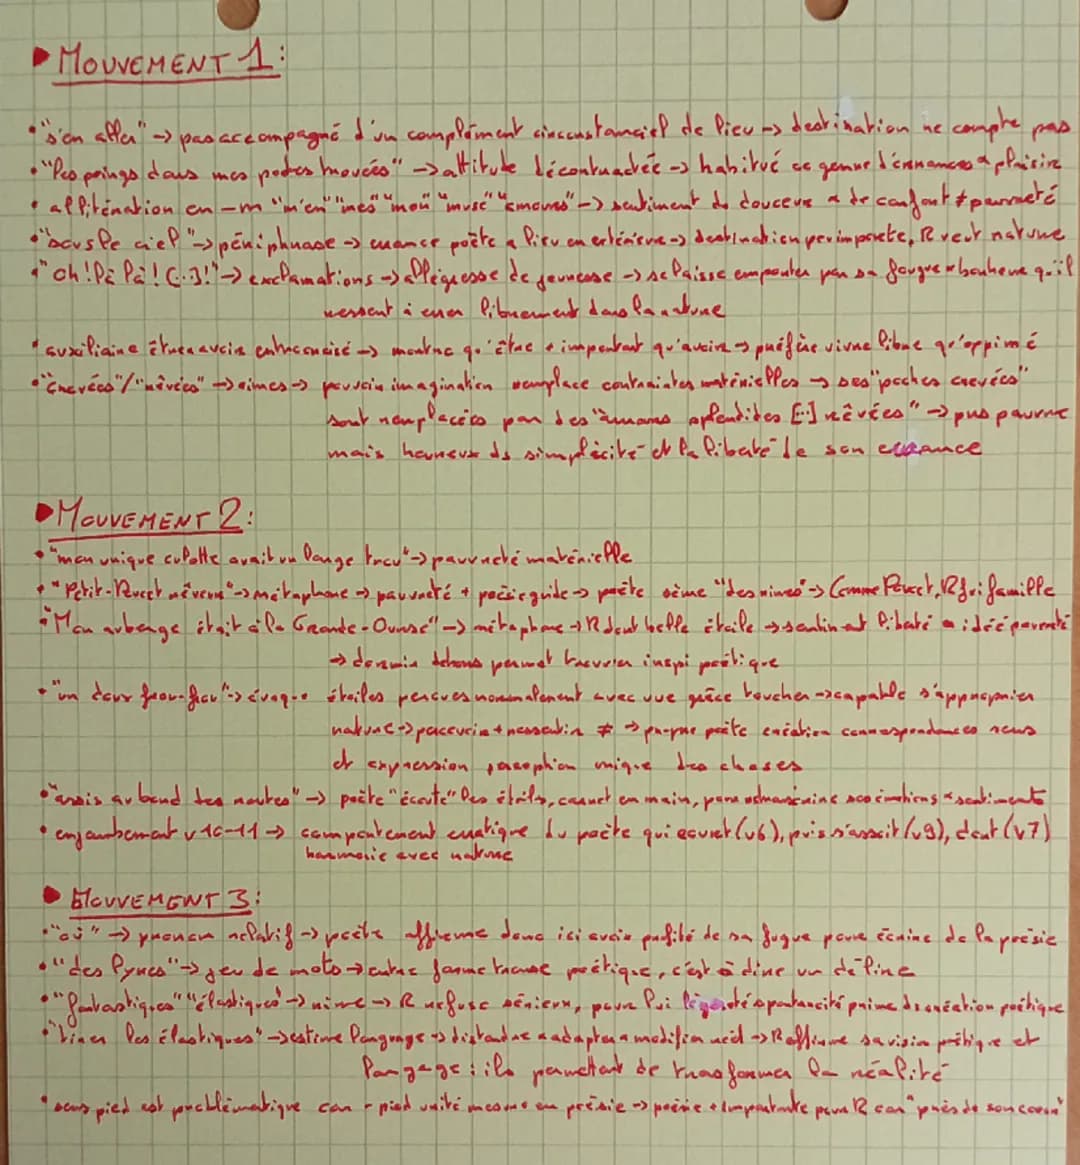 ▶ MOUVEMENT 1 :
• "s'en aller" → pas accompagné d'un complément circonstanciel de lieu → destination ne compte pas
• "les poings dans mes poches trouées" → attitude décontractée → habitué ce genre d'errances
• allitération en -m "m'en" "mes" "mon" "muse" "amours" → sentiment de douceur de confort ≠ pauvreté
• "sous le ciel" → périphrase → errance poète a lieu en extérieure → destination peu importe, R veut nature
• "oh ! là là ! (...)!" → exclamations → allégresse de jeunesse → se laisse emporter par sa fougue bonheur qu'il
ressent à errer librement dans la nature
• auxiliaire être avoir → montre qu'être + important qu'avoir → préfère vivre libre qu'opprimé
• "crevées"/"rêvées" → rimes → pouvoir imagination remplace contraintes matérielles → ses "poches crevées"
sont remplacées par des "amours splendides [..] rêvées" → pus pauvre
mais heureux ds simplicité et la liberté de son errance
▶ MOUVEMENT 2 :
• "mon unique culotte avait un large trou" → pauvreté matérielle
• "Petit-Poucet rêveur" → métaphore → pauvreté + poésie guide → poète sème "des rimes" → Comme Poucet, R fui famille
• "Mon auberge était à la Grande-Ourse" → métaphore → R dort belle étoile → sentiment liberté idée pauvreté
→ dormir dehors permet trouver inspi poétique
• "un doux frou-frou" → évoque étoiles perçues normalement avec vue grâce toucher → capable s'approprier
nature → percevoir + ressentir ≠ → propre poète création correspondances sens
et expression perception unique des choses
• "assis au bord des routes" → poète "écoute" les étoiles, carnet en main, pour ses émotions sentiments
• enjambement v 10-11 → comportement erratique du poète qui (v6), puis s'assoit (v9), dort (v7)
harmonie avec nature
▶ MOUVEMENT 3 :
• "où" → pronom relatif → poète affirme donc ici avoir profité de sa fugue pour écrire de la poésie
• "des lyres" → jeu de mots → autre forme transe poétique, c'est à dire un délire
• "fantastiques" "élastiques" → rime → R refuse sérieux, pour lui légèreté spontanéité prime ds création poétique
• "tirer les élastiques" → estime language → distendre adapter modifier → R affirme sa vision poétique et
langage : ils permettent de transformer la réalité
• sens pied est problématique car - pied unité mesure en poésie → poésie + importante pour R car "près de son cœur"